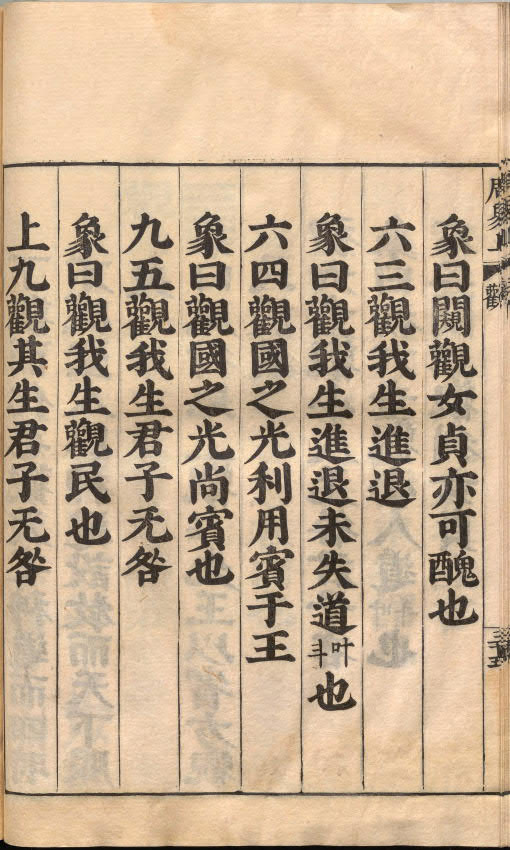 象曰闚觀女貞亦可醜也
六三觀我生進退
象曰觀我生進退未失道叶斗也
六四觀國之光利用賓于王
象曰觀國之光尚賓也
九五觀我生君子无咎
象曰觀我生觀民也
上九觀其生君子无咎